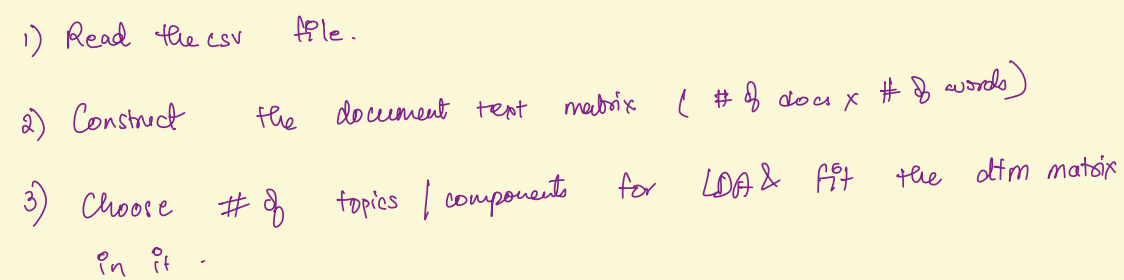 1) Read the csv file.
2) Construct the document text matrix ( # of docs x # of words)
3) Choose # of topics / components for LDA & fit the dtm matrix
in it.